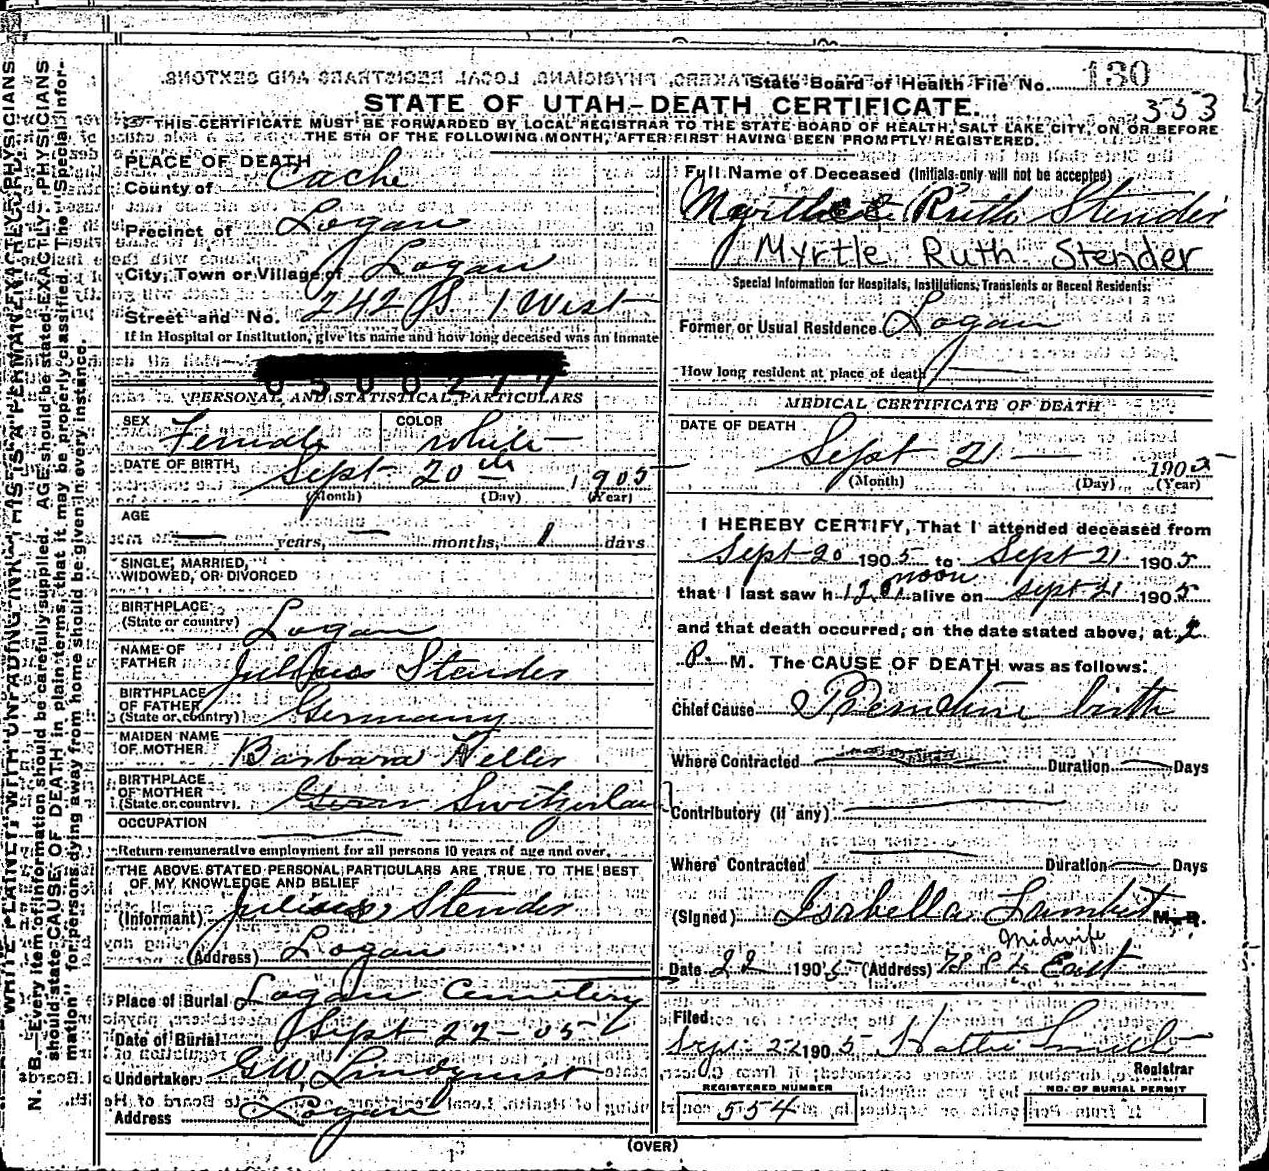 State Board of Health File No. 130
353
STATE OF UTAH-DEATH CERTIFICATE.
THIS CERTIFICATE MUST BE FORWARDED BY LOCAL REGISTRAR TO THE STATE BOARD OF HEALTH, SALT LAKE CITY, ON OR BEFORE
THE 5TH OF THE FOLLOWING MONTH, AFTER FIRST HAVING BEEN PROMPTLY REGISTERED.
PLACE OF DEATH
County of Cache
Precinct of Logan
City, Town or Village of Logan
Street and No. 242 S 1 West
If in Hospital or Institution, give its name and how long deceased was an inmate
0500277
PERSONAL AND STATISTICAL PARTICULARS
SEX Female COLOR White
DATE OF BIRTH Sept 20th 1905
(Month) (Day) (Year)
AGE
years, months, 1 days
SINGLE, MARRIED,
WIDOWED, OR DIVORCED
BIRTHPLACE
(State or country) Logan
NAME OF
FATHER Julius Stender
BIRTHPLACE
OF FATHER
(State or country) Germany
MAIDEN NAME
OF MOTHER Barbara Heller
BIRTHPLACE
OF MOTHER
(State or country) Switzerland
OCCUPATION
Return remunerative employment for all persons 10 years of age and over.
THE ABOVE STATED PERSONAL PARTICULARS ARE TRUE TO THE BEST
OF MY KNOWLEDGE AND BELIEF
(Informant) Julius Stender
(Address) Logan
Place of Burial Logan Cemetery
Date of Burial Sept 22-05
Undertaker GW. Lindquist
Address Logan
Full Name of Deceased (Initials only will not be accepted)
Ruth Stender
Myrtle Ruth Stender
Special Information for Hospitals, Institutions, Transients or Recent Residents:
Former or Usual Residence Logan
How long resident at place of death
MEDICAL CERTIFICATE OF DEATH
DATE OF DEATH
Sept 21 1905
(Month) (Day) (Year)
I HEREBY CERTIFY, That I attended deceased from
Sept 20 1905 to Sept 21 1905
noon
that I last saw h 12 alive on Sept 21 1905
and that death occurred, on the date stated above, at 2
P. M. The CAUSE OF DEATH was as follows:
Chief Cause Premature birth
Where Contracted Duration Days
Contributory (if any)
Where Contracted Duration Days
(Signed) Isabella Lambert M.D.
Midwife
Date 22 1905 (Address) East
Filed
Sept 22 1905 Hattie Smith
Registrar
REGISTERED NUMBER
554
NO. OF BURIAL PERMIT
(OVER)
WRITE PLAINLY WITH UNFADING INK THIS IS A PERMANENT RECORD
N. B.—Every item of information should be carefully supplied. AGE should be stated EXACTLY. PHYSICIANS
should state CAUSE OF DEATH in plain terms, that it may be properly classified. The "Special Infor-
mation" for persons dying away from home should be given in every instance.